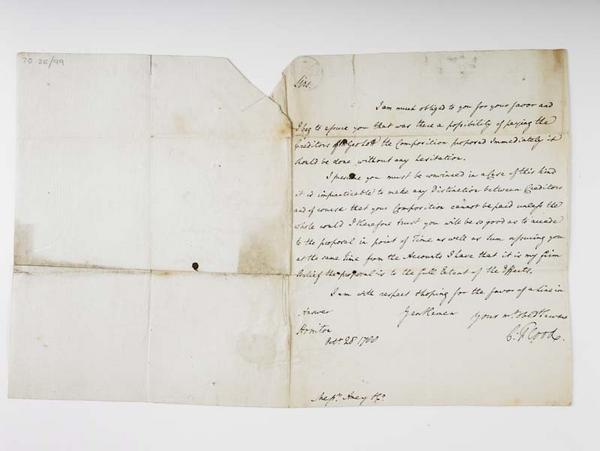 20 2E/99
Sirs,
I am much obliged to you for your favor and
I beg to assure you that was there a possibility of paying the
Creditors of the Composition proposed immediately it
should be done without any hesitation.
I presume you must be convinced in a Case of this kind
it is impracticable to make any Distinction between Creditors
and of course that your Composition cannot be paid unless the
whole could I therefore trust you will be so good as to accede
to the proposal in point of Time as well as Sum assuring you
at the same time from the Accounts I have that it is my firm
belief the proposal is to the full Extent of the Effects.
I am with respect & hoping for the favor of a Line in
Answer Gentlemen Yours
Honiton
Octr. 28
Messrs.